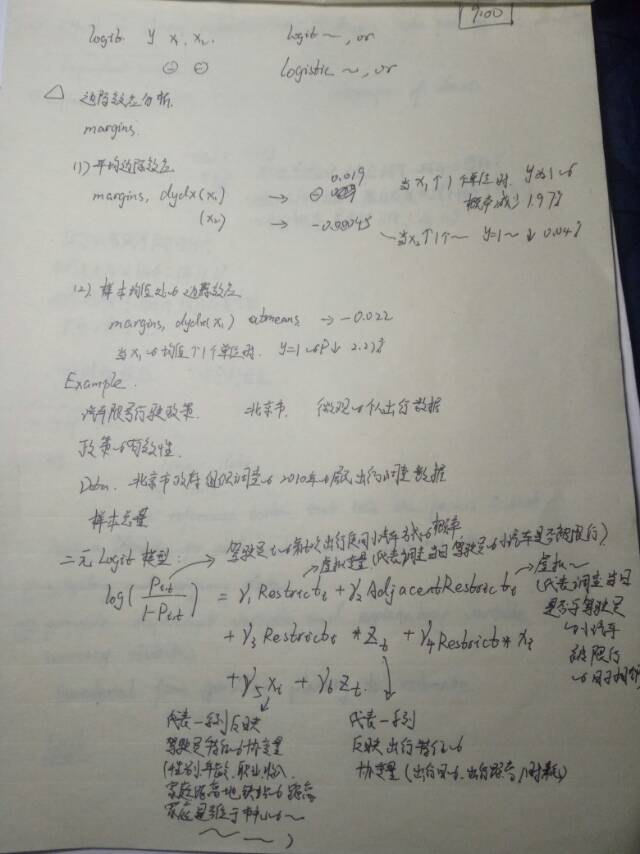 9:00
logit y x₁, x₂. logit ~, or
⊖ ⊖ logistic ~, or
△ 边际效应分析.
margins.
(1) 平均边际效应
margins, dydx(x₁) → ⊖ 0.019 当x₁↑1个单位时, y为1的
概率减少1.9%
(x₂) → -0.00045 当x₂↑1个~ y=1~↓0.04%
(2) 样本均值处的边际效应
margins, dydx(x₁) atmeans → -0.022
当x₁的均值↑1个单位时. y=1的P↓2.2%
Example.
汽车限号行驶政策. 北京市. 微观的个人出行数据
政策的有效性.
Data. 北京市政府组织调查的2010年的居民出行调查数据
样本总量
二元Logit模型: → 驾驶员i的第t次出行使用小汽车方式的概率
→ 虚拟变量(代表调查当日驾驶员的小汽车是否被限行)
log(Pi,t / 1-Pi,t) = γ₁Restrictₜ + γ₂AdjacentRestrictₜ → 虚拟~
(代表调查当日
是否为驾驶员
的小汽车
被限行
+ γ₃Restrictₜ * Zₜ + γ₄Restrict * xᵢ
+ γ₅xᵢ + γ₆Zₜ.
代表一系列反映
驾驶员特征的协变量
(性别、年龄、职业、收入.
家庭距离地铁站的距离
家庭是否位于市中心的~
~ ~ )
代表一系列
反映出行特征的
协变量(出行目的、出行距离、时耗)